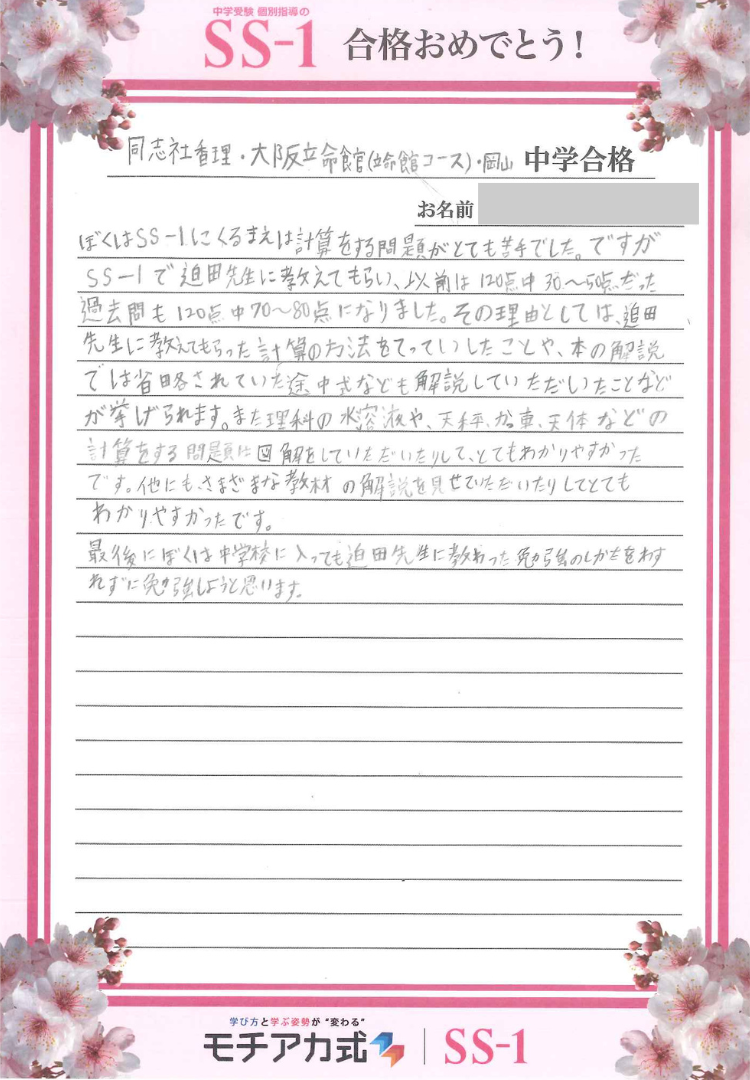 中学受験 個別指導の
SS-1 合格おめでとう!
同志社香里・大阪立命館(立命館コース)・岡山 中学合格
お名前
ぼくはSS-1にくるまえは計算をする問題がとても苦手でした。ですが
SS-1で迫田先生に教えてもらい、以前は120点中30～50点だった
過去問も120点中70～80点になりました。その理由としては、迫田
先生に教えてもらった計算の方法をてっていしたことや、本の解説
では省略されていた途中式なども解説していただいたことなど
が挙げられます。また理科の水溶液や、天秤、かっ車、天体などの
計算をする問題は図解をしていただいたりして、とてもわかりやすかった
です。他にも、さまざまな教材の解説を見せていただいたりしてとても
わかりやすかったです。
最後にぼくは中学校に入っても迫田先生に教わった勉強のしかたをわす
れずに勉強しようと思います。
学び方と学ぶ姿勢が“変わる”
モチアカ式 | SS-1